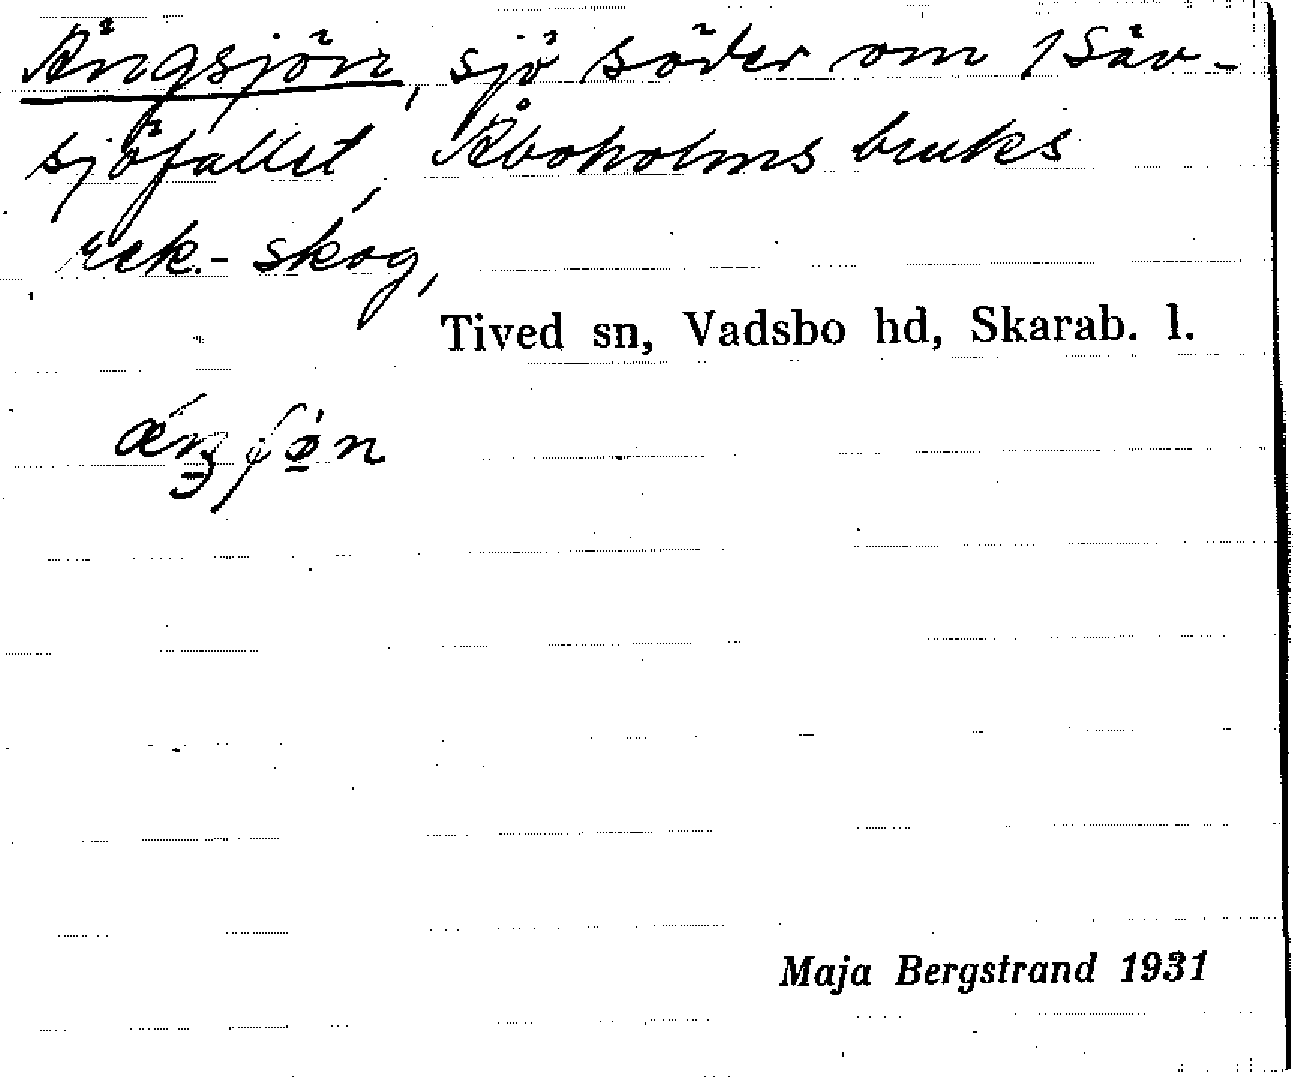 Ängsjön, sjö söder om 1 Säv-
sjöfallet, Åboholms bruks
rek.- skog,
Tived sn, Vadsbo hd, Skarab. l.
Maja Bergstrand 1931